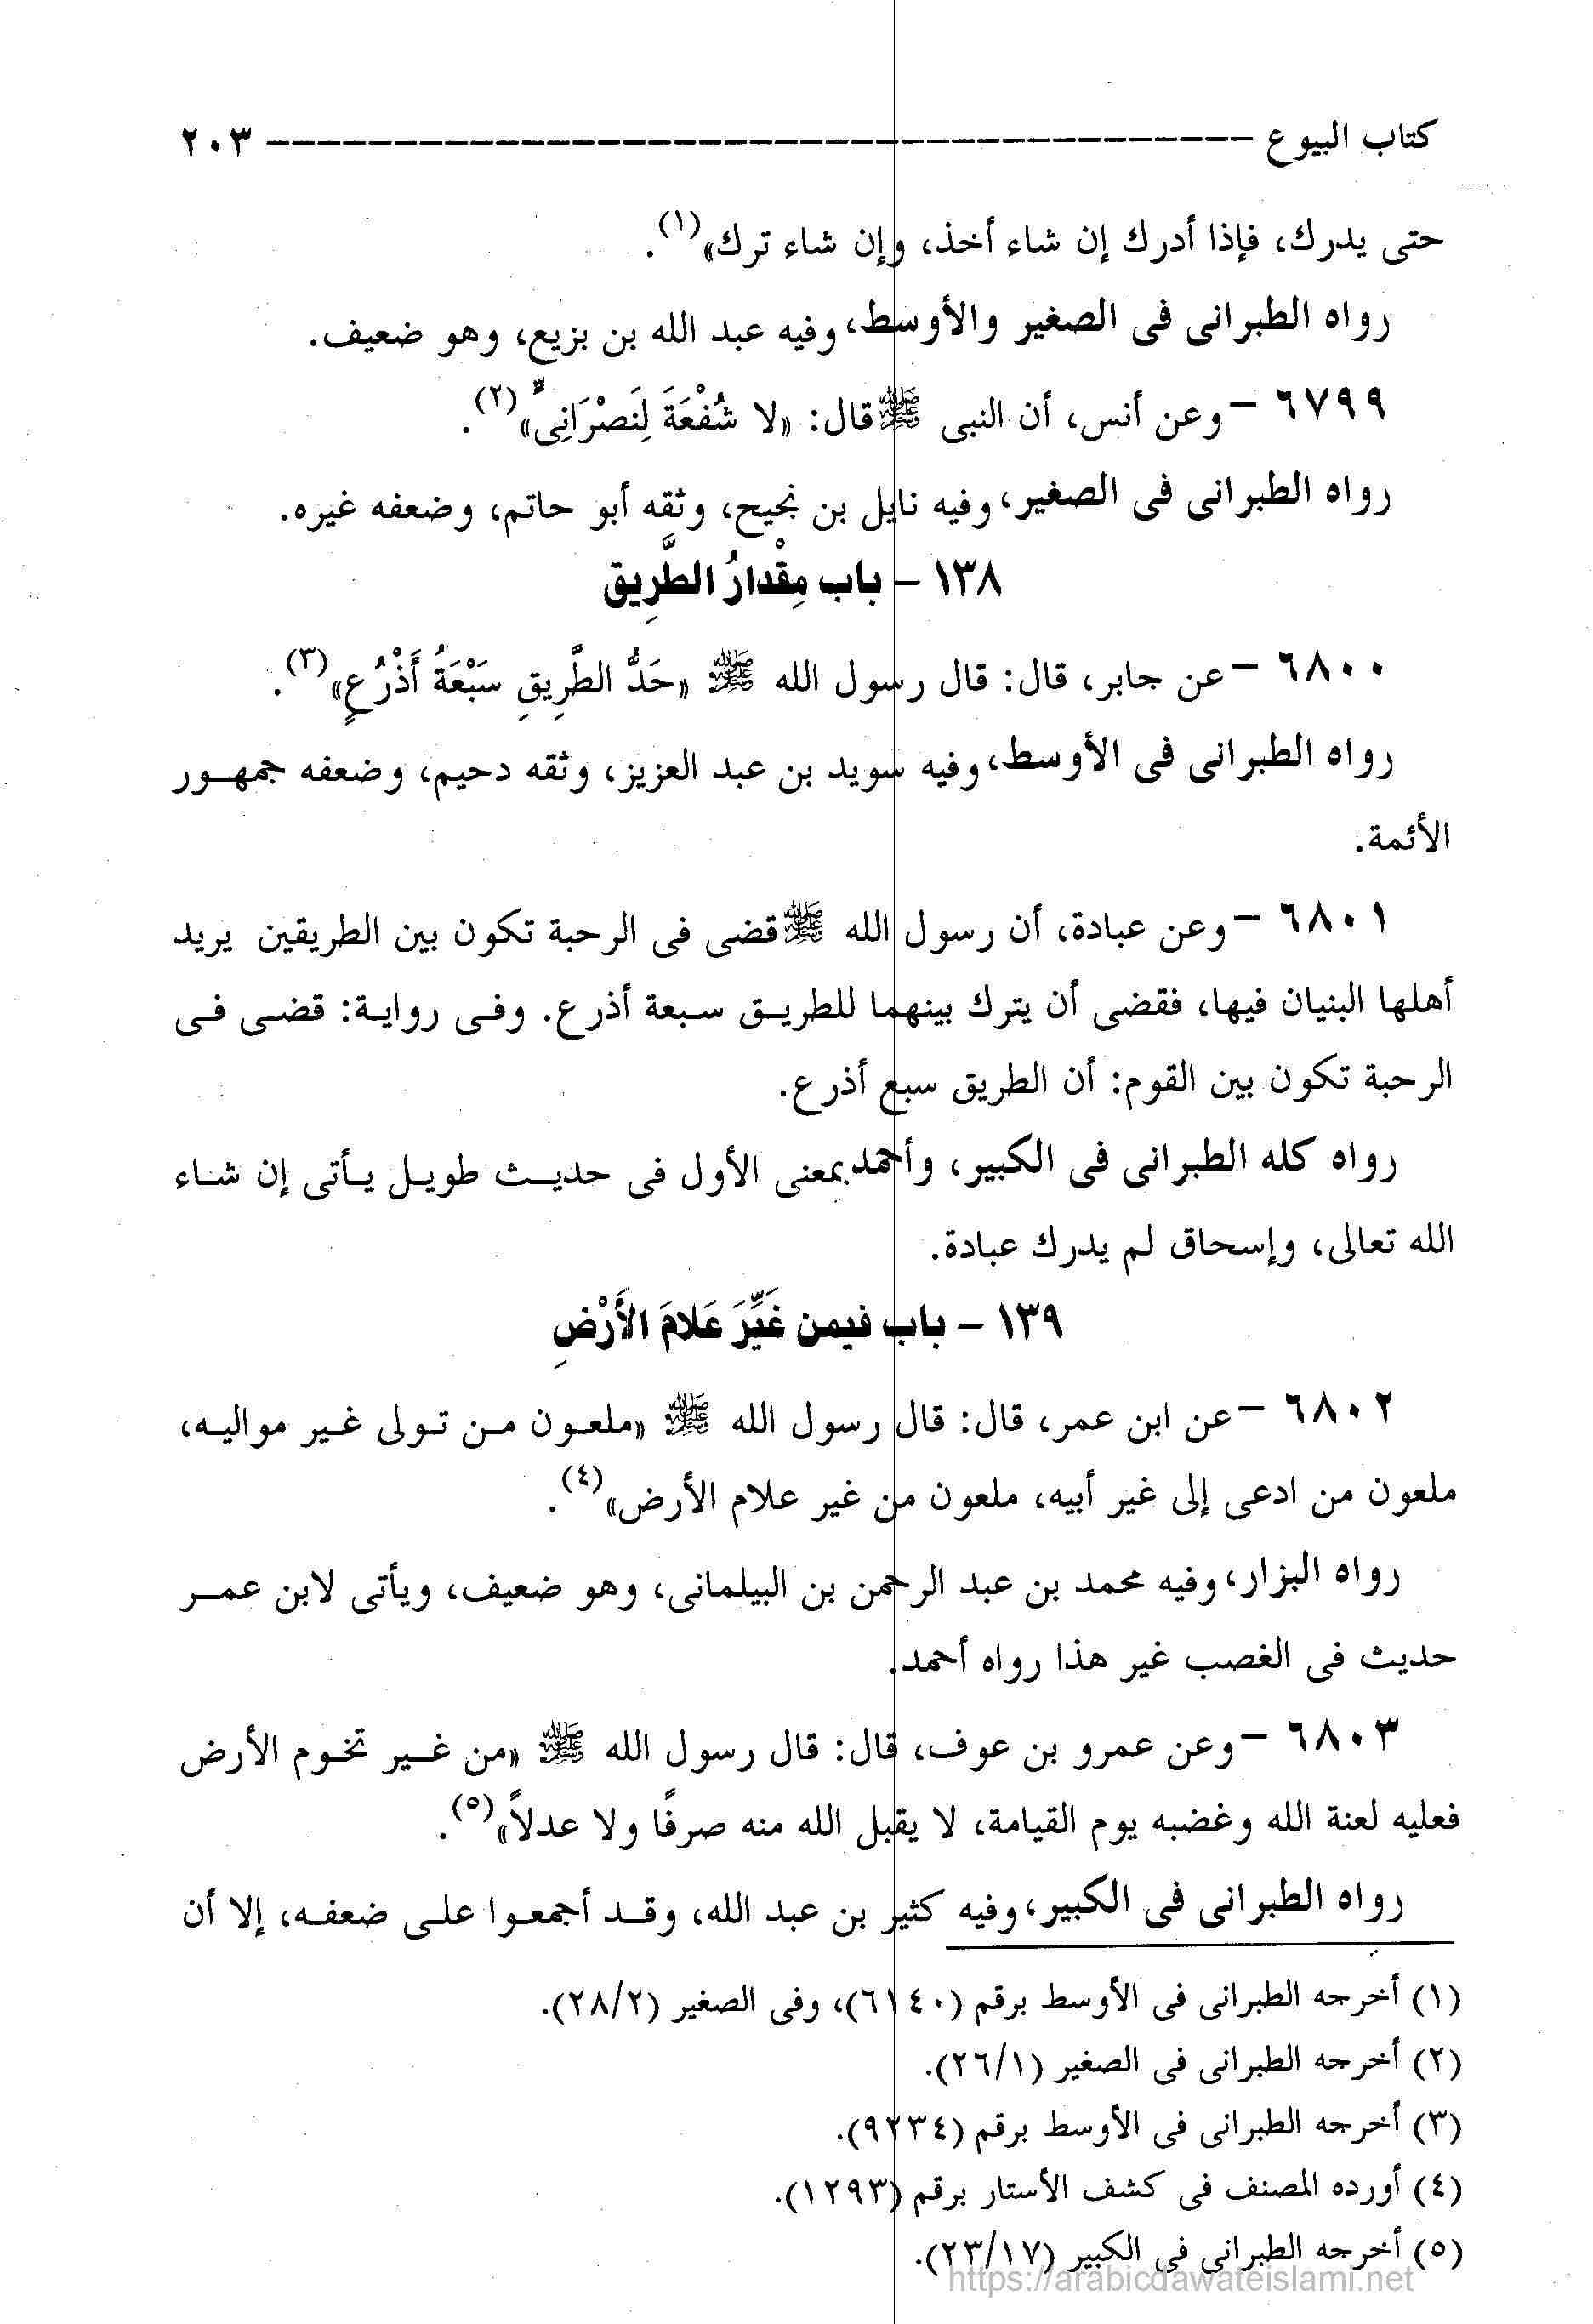 كتاب البيوع ــــــــــــــــــــــــــــــــــــــــ ٢٠٣
حتى يدرك، فإذا أدرك إن شاء أخذ، وإن شاء ترك»(١).
رواه الطبرانى فى الصغير والأوسط، وفيه عبد الله بن بزيع، وهو ضعيف.
٦٧٩٩ – وعن أنس، أن النبى ﷺ قال: «لا شُفْعَةَ لِنَصْرَانِىٍّ»(٢).
رواه الطبرانى فى الصغير، وفيه نايل بن نجيح، وثقه أبو حاتم، وضعفه غيره.
١٣٨ – باب مِقْدارُ الطَّرِيق
٦٨٠٠ – عن جابر، قال: قال رسول الله ﷺ «حَدُّ الطَّرِيقِ سَبْعَةُ أَذْرُعٍ»(٣).
رواه الطبرانى فى الأوسط، وفيه سويد بن عبد العزيز، وثقه دحيم، وضعفه جمهور
الأئمة.
٦٨٠١ – وعن عبادة، أن رسول الله ﷺ قضى فى الرحبة تكون بين الطريقين يريد
أهلها البنيان فيها، فقضى أن يترك بينهما للطريق سبعة أذرع. وفى رواية: قضى فى
الرحبة تكون بين القوم: أن الطريق سبع أذرع.
رواه كله الطبرانى فى الكبير، وأحمد بمعنى الأول فى حديث طويل يأتى إن شاء
الله تعالى، وإسحاق لم يدرك عبادة.
١٣٩ – باب فيمن غَيِّرَ عَلامَ الأَرْضِ
٦٨٠٢ – عن ابن عمر، قال: قال رسول الله ﷺ «ملعون من تولى غير مواليه،
ملعون من ادعى إلى غير أبيه، ملعون من غير علام الأرض»(٤).
رواه البزار، وفيه محمد بن عبد الرحمن بن البيلمانى، وهو ضعيف، ويأتى لابن عمر
حديث فى الغصب غير هذا رواه أحمد.
٦٨٠٣ – وعن عمرو بن عوف، قال: قال رسول الله ﷺ «من غير تخوم الأرض
فعليه لعنة الله وغضبه يوم القيامة، لا يقبل الله منه صرفًا ولا عدلاً»(٥).
رواه الطبرانى فى الكبير، وفيه كثير بن عبد الله، وقد أجمعوا على ضعفه، إلا أن
(١) أخرجه الطبرانى فى الأوسط برقم (٦١٤٠)، وفى الصغير (٢٨/٢).
(٢) أخرجه الطبرانى فى الصغير (٢٦/١).
(٣) أخرجه الطبرانى فى الأوسط برقم (٩٢٣٤).
(٤) أورده المصنف فى كشف الأستار برقم (١٢٩٣).
(٥) أخرجه الطبرانى فى الكبير (٢٣/١٧).
https://arabicdawateislami.net